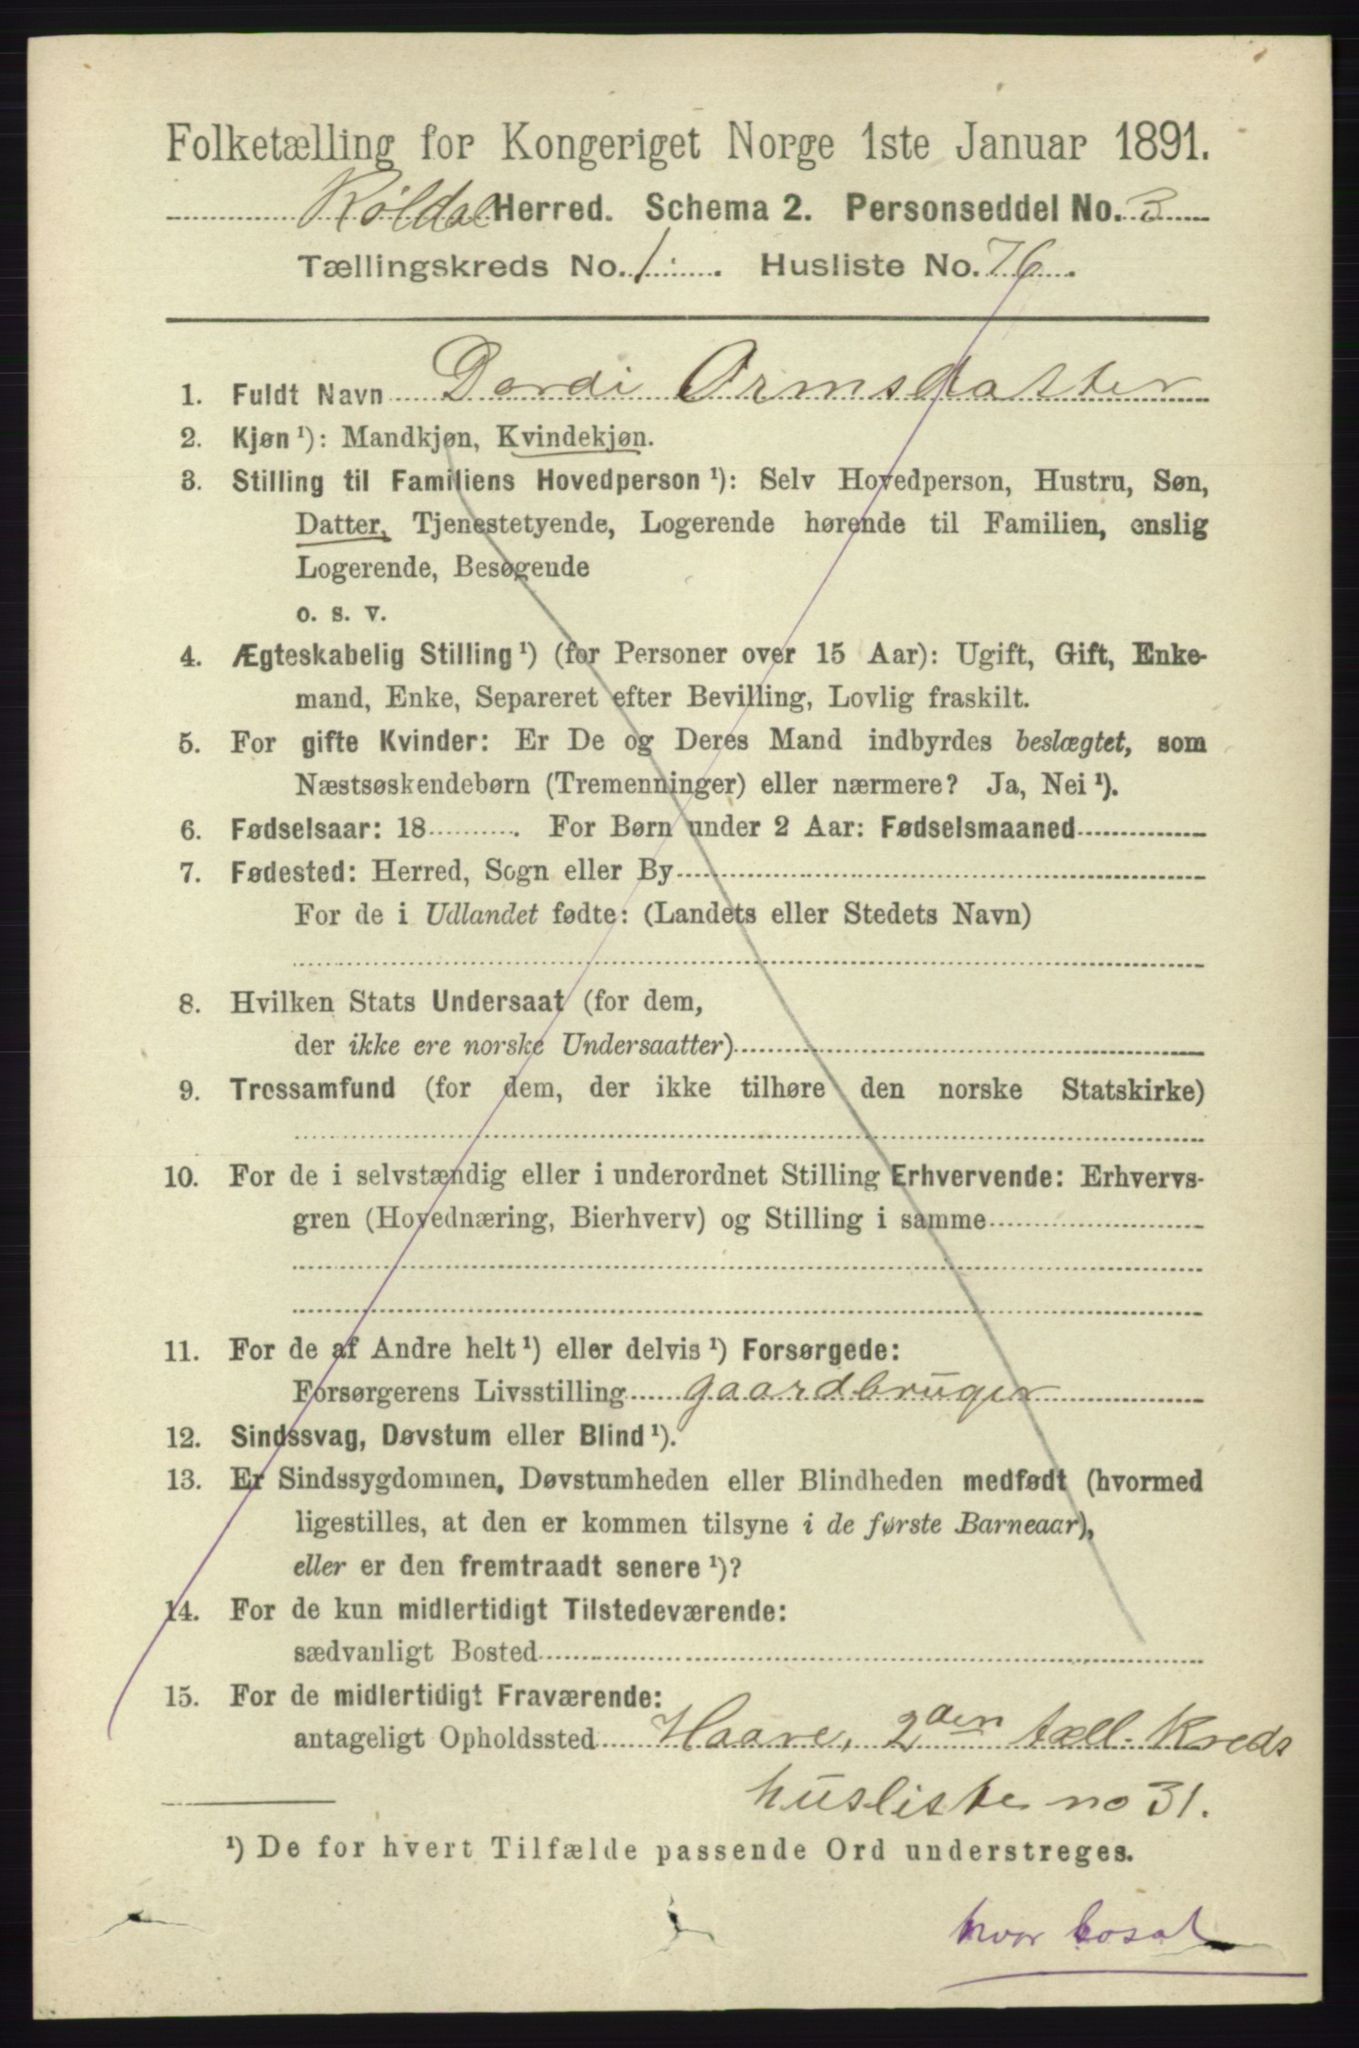 Folketælling for Kongeriget Norge 1ste Januar 1891.
Røldal Herred. Schema 2. Personseddel No. 3
Tællingskreds No. 1. Husliste No. 76.
1. Fuldt Navn Dordi Ormsdatter
2. Kjøn ¹): Mandkjøn, Kvindekjøn.
3. Stilling til Familiens Hovedperson ¹): Selv Hovedperson, Hustru, Søn,
Datter, Tjenestetyende, Logerende hørende til Familien, enslig
Logerende, Besøgende
o. s. v.
4. Ægteskabelig Stilling ¹) (for Personer over 15 Aar): Ugift, Gift, Enke-
mand, Enke, Separeret efter Bevilling, Lovlig fraskilt.
5. For gifte Kvinder: Er De og Deres Mand indbyrdes beslægtet, som
Næstsøskendebørn (Tremenninger) eller nærmere? Ja, Nei ¹).
6. Fødselsaar: 18 . For Børn under 2 Aar: Fødselsmaaned
7. Fødested: Herred, Sogn eller By
For de i Udlandet fødte: (Landets eller Stedets Navn)
8. Hvilken Stats Undersaat (for dem,
der ikke ere norske Undersaatter)
9. Trossamfund (for dem, der ikke tilhøre den norske Statskirke)
10. For de i selvstændig eller i underordnet Stilling Erhvervende: Erhvervs-
gren (Hovednæring, Bierhverv) og Stilling i samme
11. For de af Andre helt ¹) eller delvis ¹) Forsørgede:
Forsørgerens Livsstilling gaardbruger
12. Sindssvag, Døvstum eller Blind ¹).
13. Er Sindssygdommen, Døvstumheden eller Blindheden medfødt (hvormed
ligestilles, at den er kommen tilsyne i de første Barneaar),
eller er den fremtraadt senere ¹)?
14. For de kun midlertidigt Tilstedeværende:
sædvanligt Bosted
15. For de midlertidigt Fraværende:
antageligt Opholdssted Haare, 2den tæll. Kreds
husliste no 31.
¹) De for hvert Tilfælde passende Ord understreges.
hvor bosat